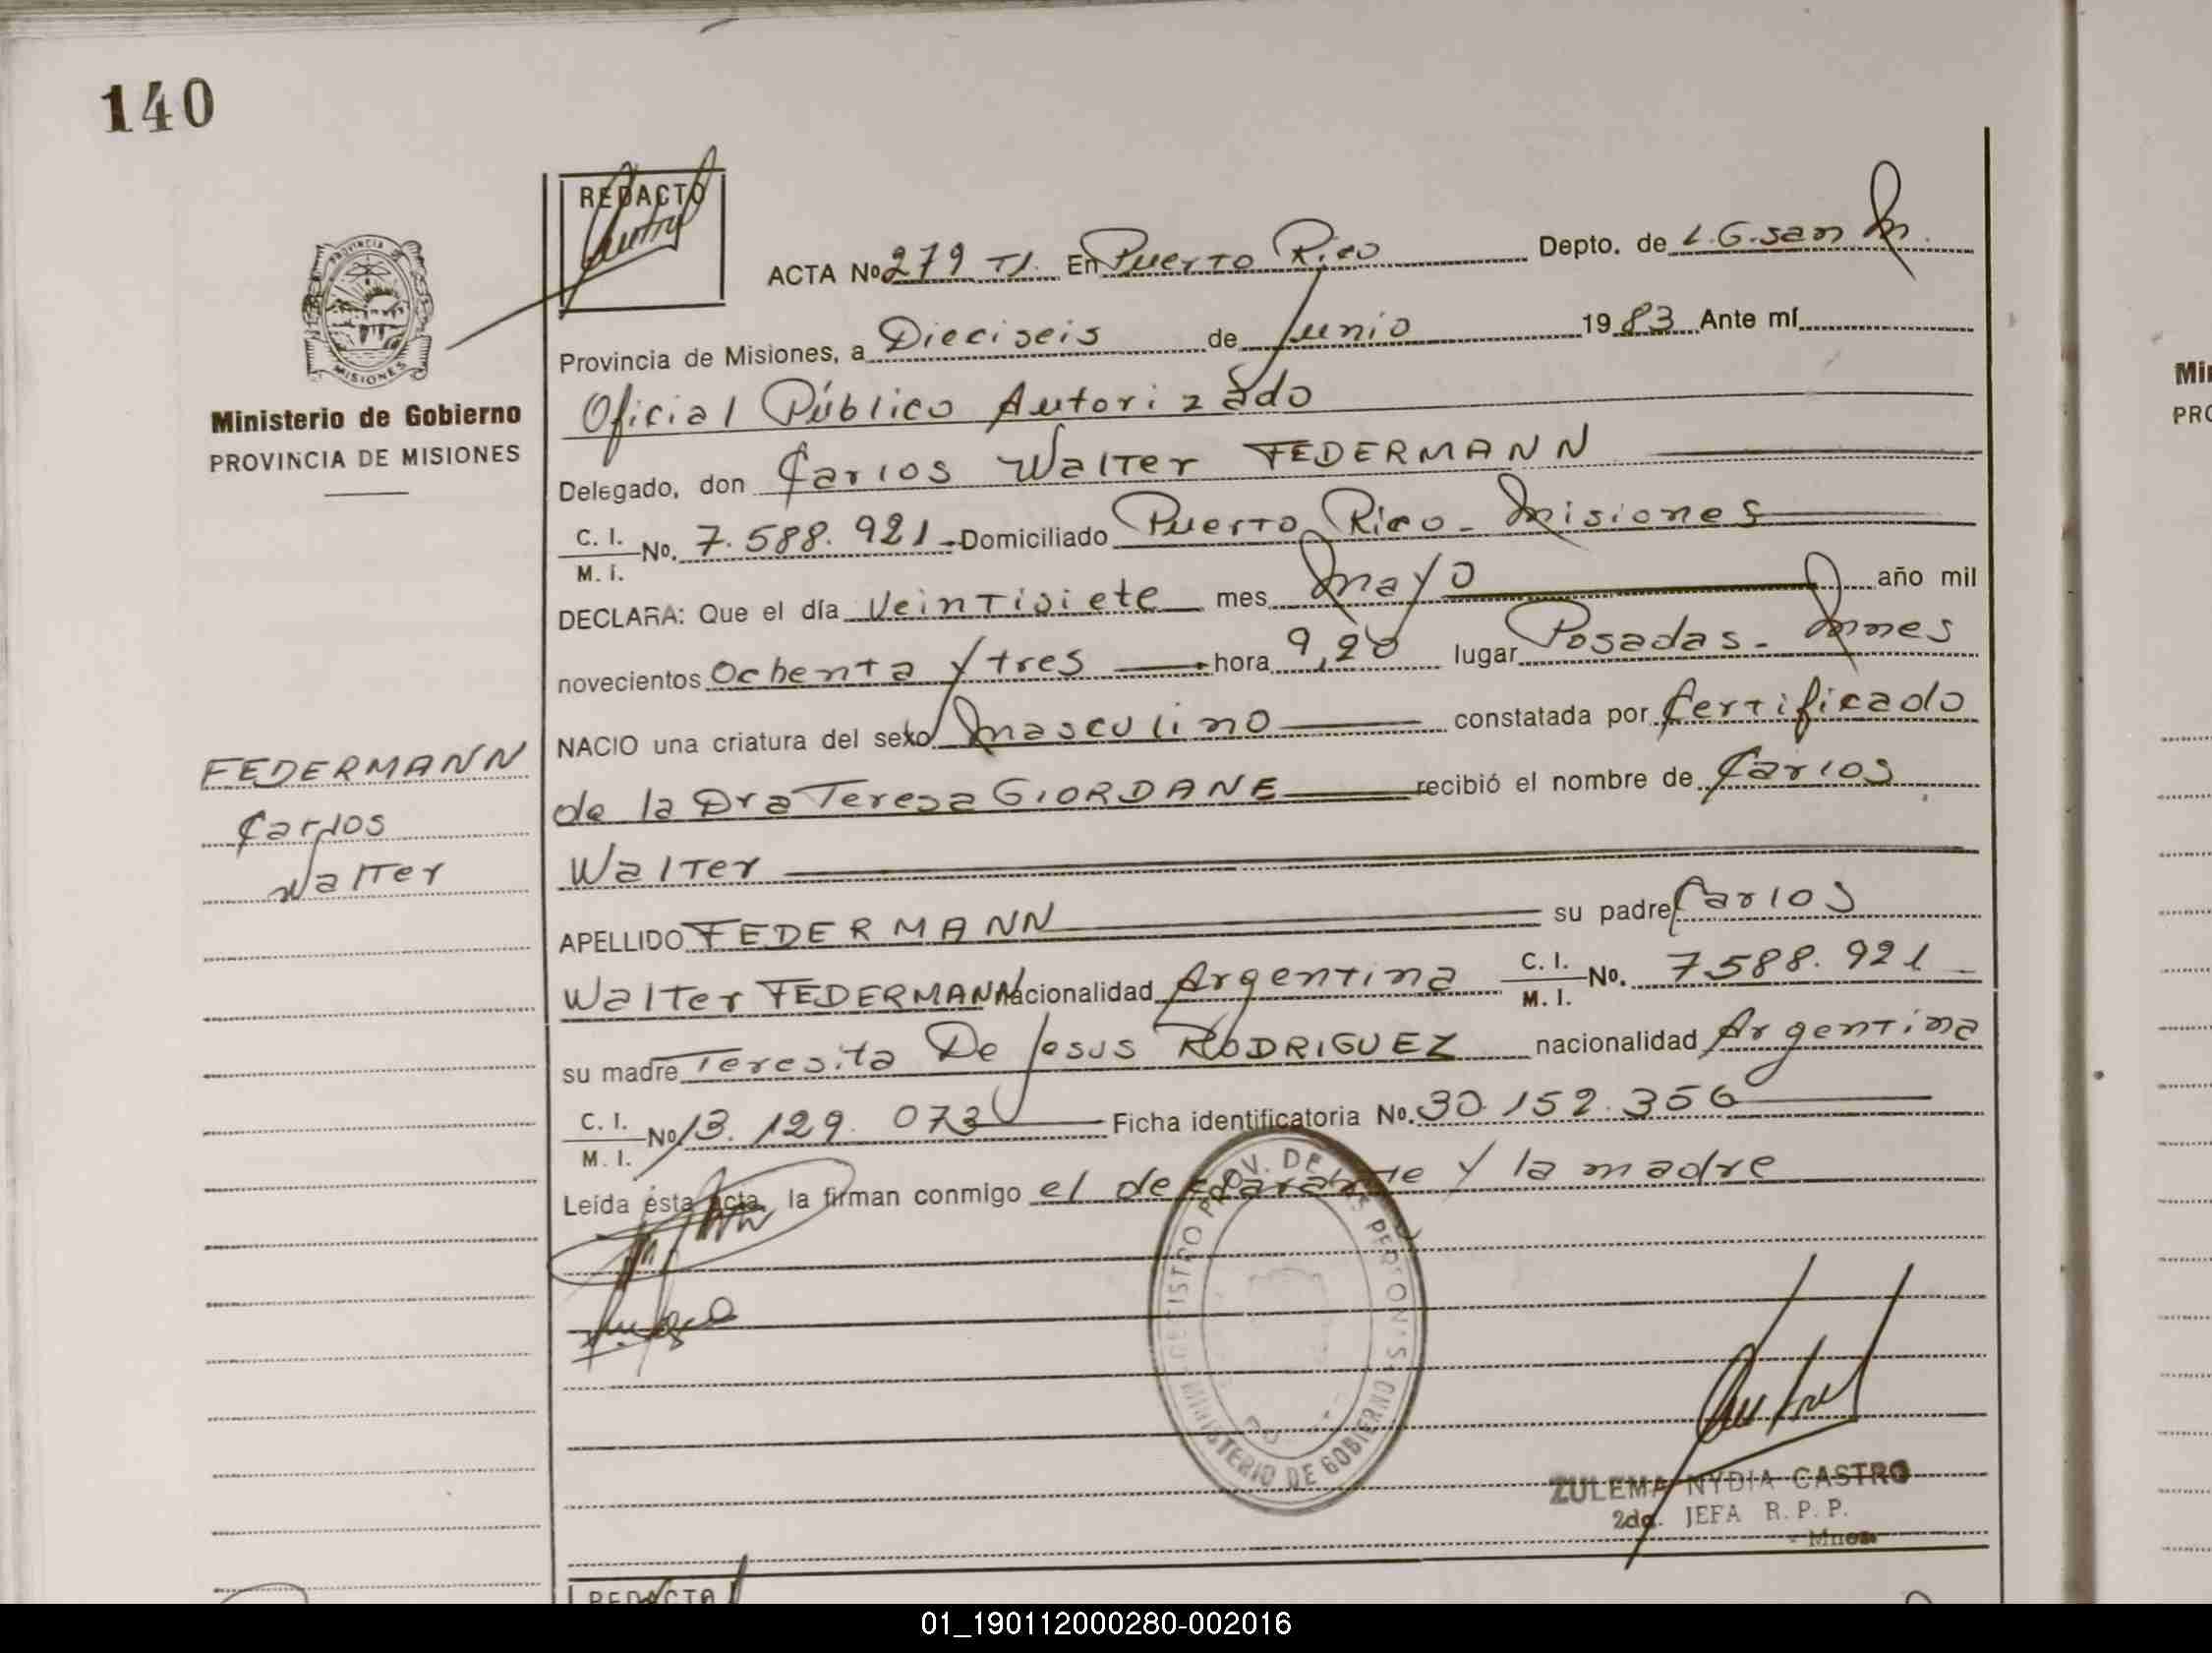 140
REDACTO
ACTA No 279 TI. En Puerto Rico Depto. de L.G.San M.
Provincia de Misiones, a Dieciseis de Junio 1983 Ante mí
Oficial Público Autorizado
Ministerio de Gobierno
PROVINCIA DE MISIONES
MISIONES
Delegado, don Carlos Walter FEDERMANN
C. I. M. I. No. 7.588.921 - Domiciliado Puerto Rico - Misiones
DECLARA: Que el día Veintisiete mes Mayo año mil
novecientos Ochenta y tres hora 9,20 lugar Posadas - Mnes
NACIO una criatura del sexo Masculino constatada por Certificado
FEDERMANN
Carlos
Walter
de la Dra Teresa GIORDANE recibió el nombre de Carlos
Walter
APELLIDO FEDERMANN su padre Carlos
Walter FEDERMANN nacionalidad Argentina C. I. M. I. No. 7588.921
su madre Teresita De Jesus RODRIGUEZ nacionalidad Argentina
C. I. M. I. No 13.129.073 Ficha identificatoria No. 30.152.356
Leída ésta acta, la firman conmigo el declarante y la madre
REGISTRO PROV. DE LAS PERSONAS
MINISTERIO DE GOBIERNO
ZULEMA NYDIA CASTRO
2da. JEFA R. P. P.
- Mnes.
REDACTO
Mi
PRO
01_190112000280-002016